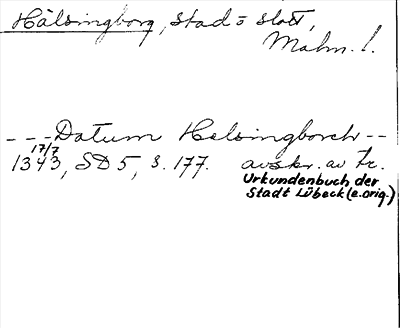 Hälsingborg, stad o slott,
Malm. l.
---Datum Helsingborch--
17/7
1343, SD 5, s. 177. avskr. av tr.
Urkundenbuch der
Stadt Lübeck (e. orig.)